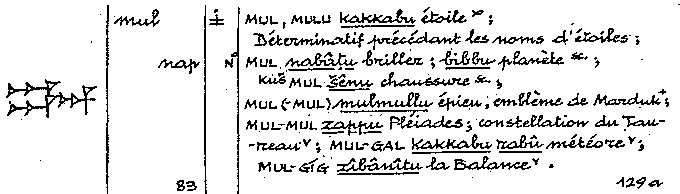 mul ± MUL, MULU kakkabu étoile ×;
Déterminatif précédant les noms d'étoiles;
nap N° MUL nabâṭu briller; bibbu planète &c.;
KUŠ MUL šênu chaussure &c.;
MUL(-MUL) mulmullu épieu, emblème de Marduk+;
MUL-MUL zappu Pléiades; constellation du Tau-
-reau; MUL-GAL kakkabu rabû météore;
MUL-GÍG zîbânîtu la Balance.
83 129a